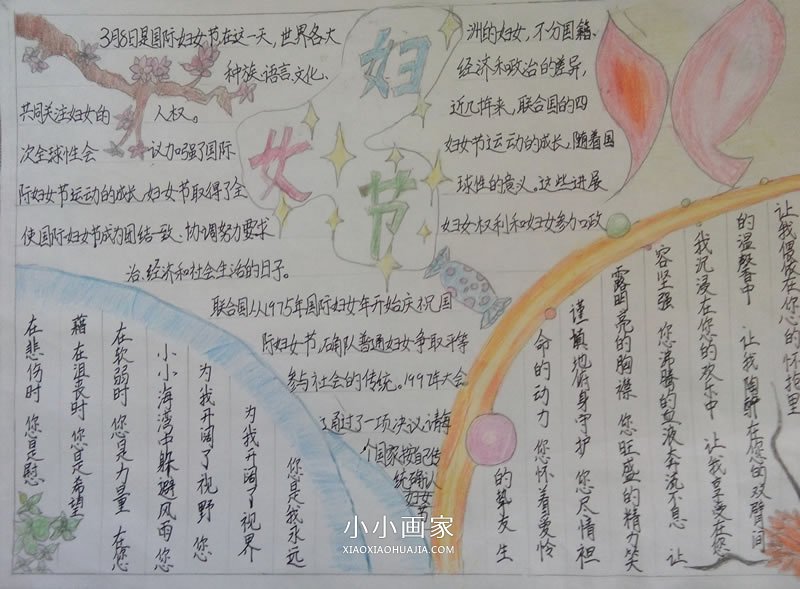 妇
女
节
3月8日是国际妇女节,在这一天,世界各大
洲的妇女,不分国籍、
种族、语言、文化、
经济和政治的差异,
共同关注妇女的人权。
近几年来,联合国的四
次全球性会议加强了国际
妇女节运动的成长,随着国
际妇女节运动的成长,妇女节取得了全
球性的意义。这些进展
使国际妇女节成为团结一致、协调努力要求
妇女权利和妇女参加政
治、经济和社会生活的日子。
联合国从1975年国际妇女年开始庆祝国
际妇女节,确认普通妇女争取平等
参与社会的传统。1997年大会
通过了一项决议,请每
个国家按自己传
统确认
妇女
让我偎依在你心的怀抱里
的温馨中 让我陶醉在您的双臂间
我沉浸在您的欢乐中 让我享受在您
容坚强 您沸腾的血液奔流不息 让
露明亮的胸襟 您旺盛的精力笑
谨慎地俯身守护 您尽情袒
命的动力 您怀着爱怜
的挚友 生
您是我永远
为我开阔了视界
为我开阔了视野 您
小小海湾中躲避风雨 您
在软弱时 您是力量 在您
藉 在沮丧时 您是希望
在悲伤时 您是慰
小小画家
XIAOXIAOHUAJIA.COM